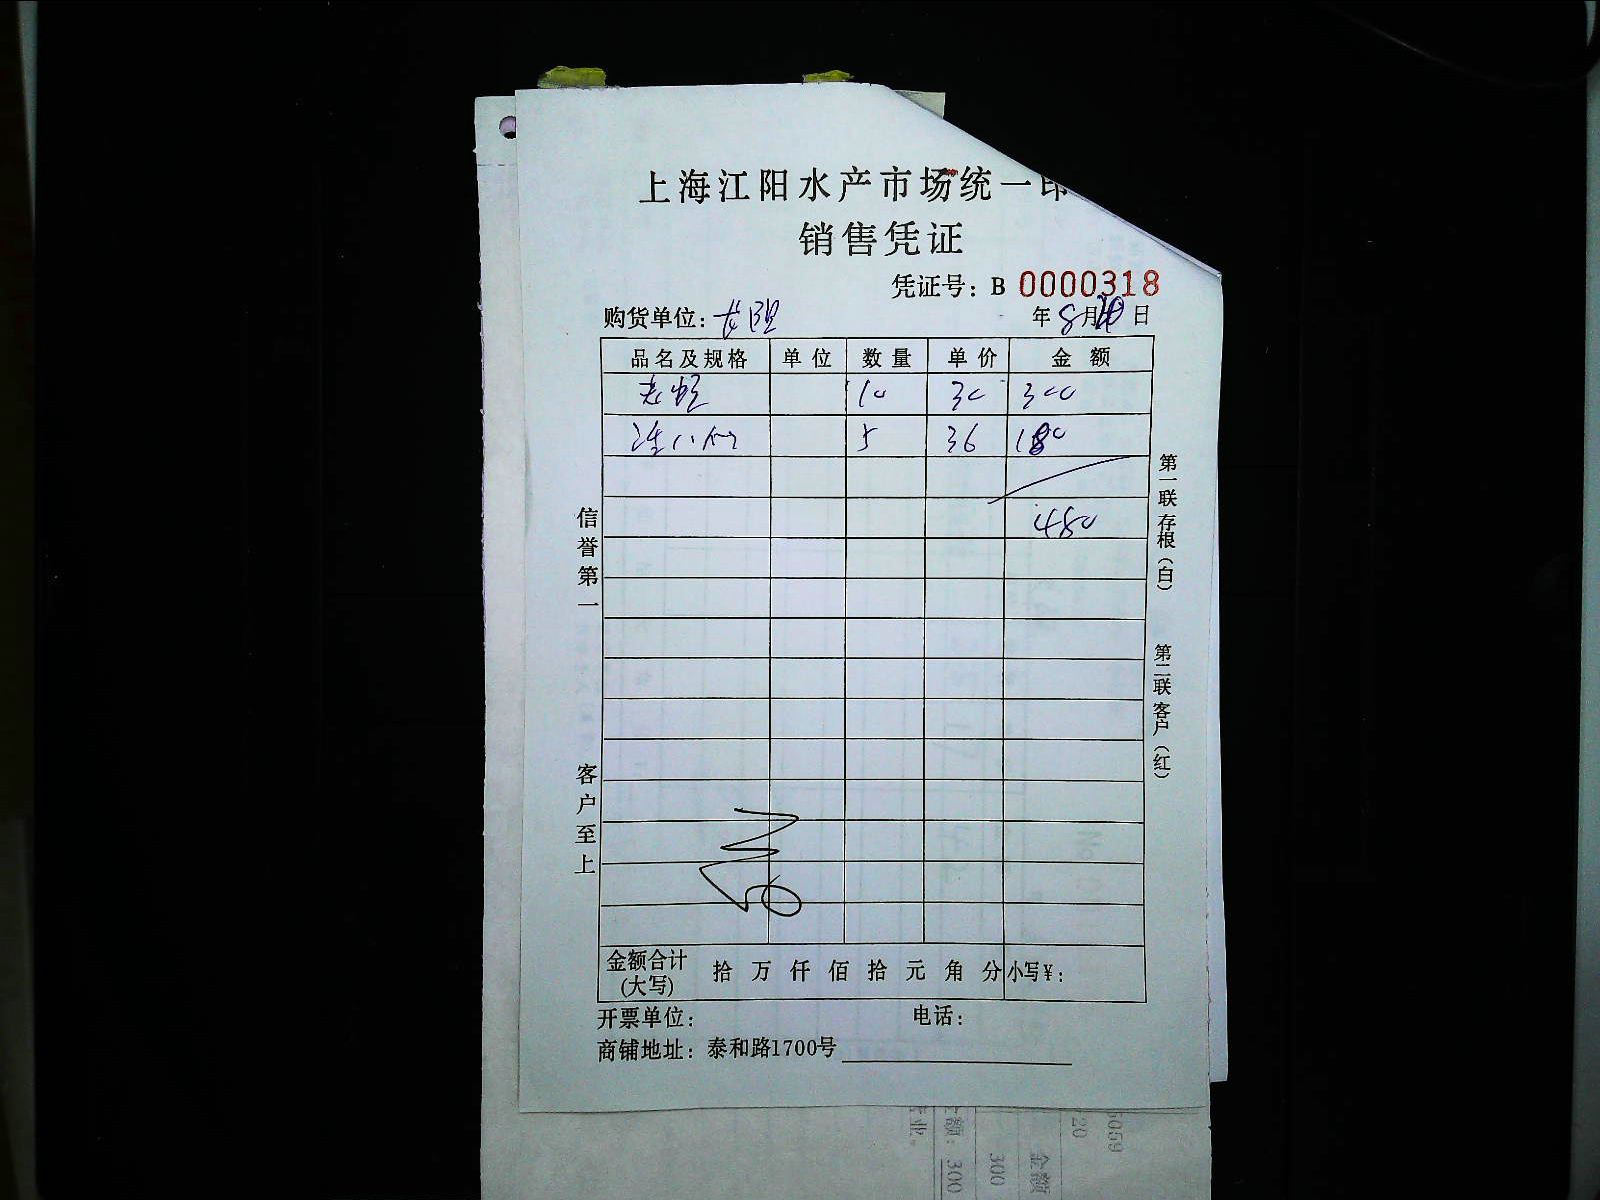 上海江阳水产市场统一印
销售凭证
凭证号：B 0000318
购货单位：
年 8 月 日
品名及规格 单位 数量 单价 金额
10 30 300
5 36 180
480
信誉第一
客户至上
第一联存根（白）
第二联客户（红）
金额合计(大写) 拾 万 仟 佰 拾 元 角 分 小写¥：
开票单位： 电话：
商铺地址：泰和路1700号
5059
20
金额
300
300